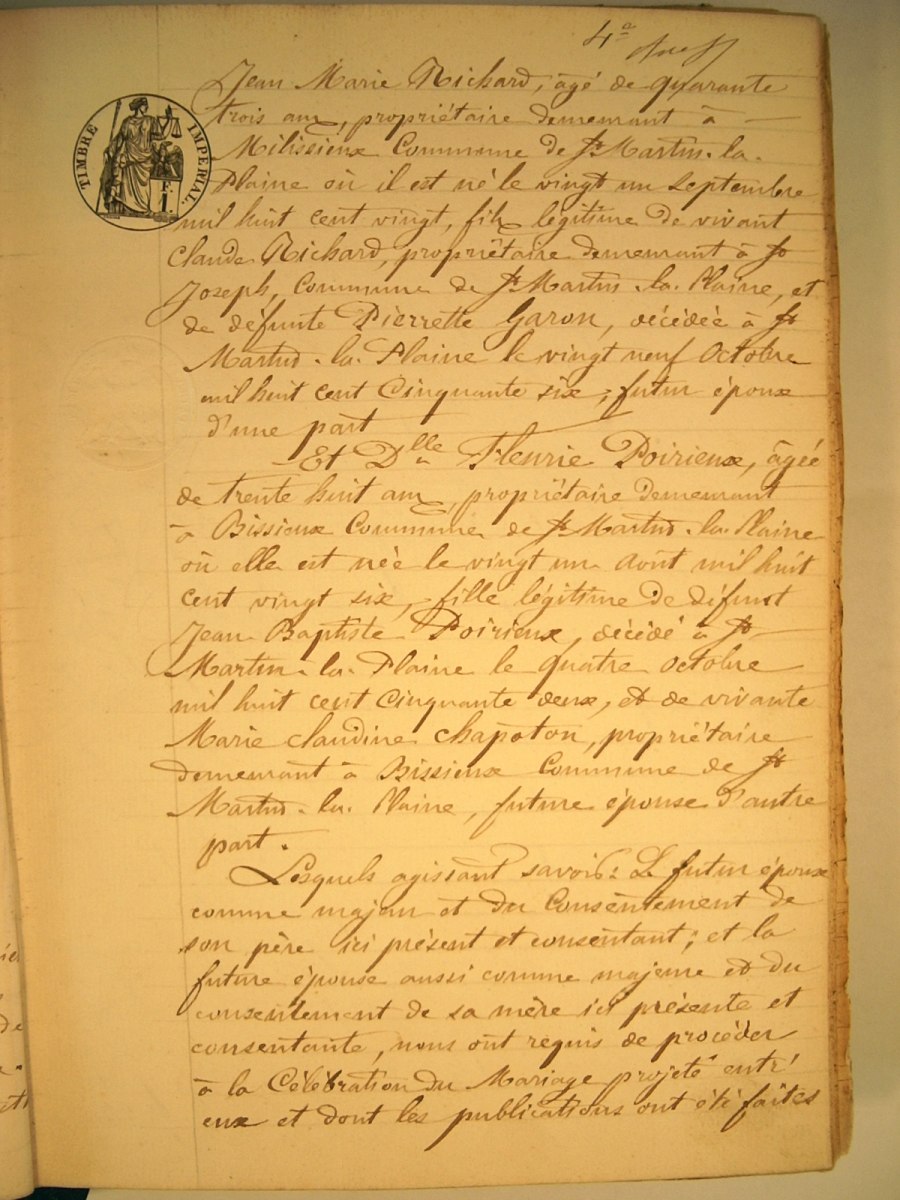 4e
TIMBRE IMPERIAL.
F.
1.
Jean Marie Richard, âgé de quarante
trois ans, propriétaire demeurant à
Milissieux Commune de St Martin-la-
Plaine où il est né le vingt un septembre
mil huit cent vingt, fils légitime de vivant
claude Richard, propriétaire demeurant à St
Joseph, Commune de St Martin-la-Plaine, et
de défunte Pierrette Garon, décédée à St
Martin-la-Plaine le vingt neuf Octobre
mil huit cent Cinquante six ; futur époux
d'une part
Et Dlle Fleurie Poirieux, âgée
de trente huit ans, propriétaire demeurant
à Bissieux Commune de St Martin-la-Plaine
où elle est née le vingt un Août mil huit
cent vingt six, fille légitime de défunt
Jean Baptiste Poirieux, décédé à St
Martin-la-Plaine le quatre Octobre
mil huit cent Cinquante deux, et de vivante
Marie claudine chapoton, propriétaire
demeurant à Bissieux Commune de St
Martin-la-Plaine, future épouse d'autre
part.
Lesquels agissant savoir: Le futur époux
comme majeur et du Consentement de
son père ici présent et consentant ; et la
future épouse aussi comme majeure et du
consentement de sa mère ici présente et
consentante, nous ont requis de procéder
à la Célébration du Mariage projeté entr'
eux et dont les publications ont été faites